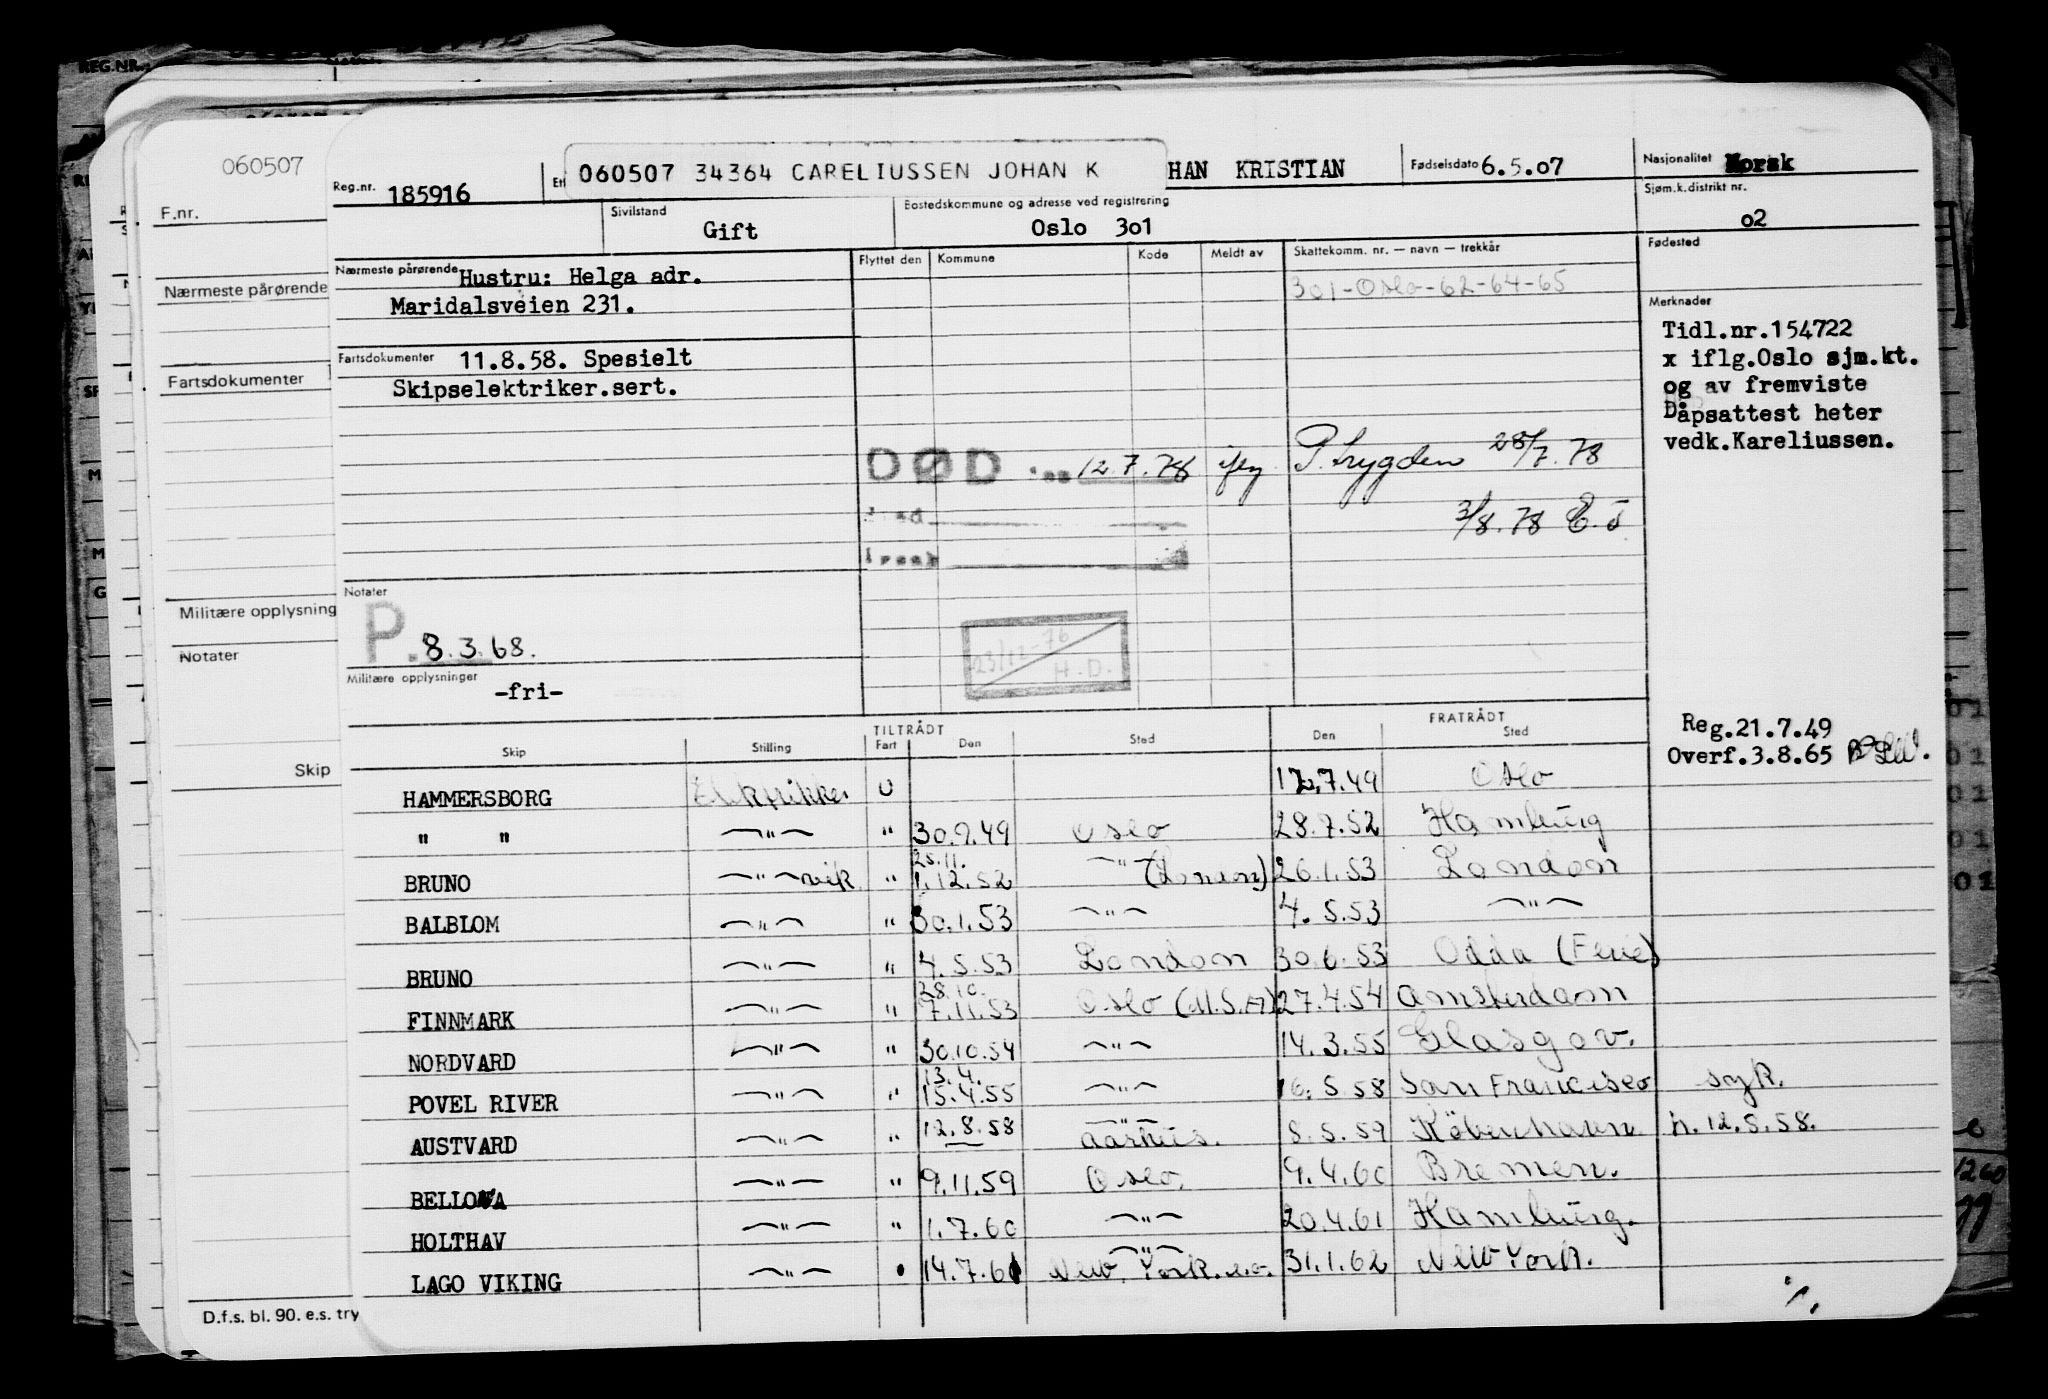 REG.NR.
060507
F.nr.
Nærmeste pårørende
Fartsdokumenter
Militære opplysning
Notater
Skip
D.f.s. bl. 90. e.s. try
Reg.nr. 185916
060507 34364 CARELIUSSEN JOHAN K HAN KRISTIAN
Fødselsdato 6.5.07
Nasjonalitet Norsk
Sivilstand Gift
Bostedskommune og adresse ved registrering Oslo 301
Sjøm.k.distrikt nr. 02
Nærmeste pårørende Hustru: Helga adr.
Maridalsveien 231.
Flyttet den Kommune Kode Meldt av Skattekomm. nr. — navn — trekkår
301-Oslo-62-64-65
Fødested
Merknader
Tidl.nr.154722
x iflg.Oslo sjm.kt.
og av fremviste
Dåpsattest heter
vedk.Kareliussen.
Fartsdokumenter 11.8.58. Spesielt
Skipselektriker.sert.
DØD 12.7.78 P.trygden 28/7.78
3/8.78 E.J
Notater
P. 8.3.68.
23/12-76
H.D.
Militære opplysninger -fri-
Reg.21.7.49
Overf.3.8.65
TILTRÅDT FRATRÅDT
Skip Stilling Fart Den Sted Den Sted
HAMMERSBORG Elektrikker U 12.7.49 Oslo
" " —"— " 30.9.49 Oslo 28.7.52 Hamburg
BRUNO —"— vik " 25.11. 1.12.52 —"— 26.1.53 London
BALBLOM —"— " 30.1.53 —"— 4.5.53 —"—
BRUNO —"— " 4.5.53 London 30.6.53 Odda (Ferie)
FINNMARK —"— " 28.10. 7.11.53 Oslo (U.S.A) 27.4.54 Amsterdam
NORDVARD —"— " 30.10.54 —"— 14.3.55 Glasgov.
POVEL RIVER —"— " 13.4. 15.4.55 —"— 16.5.58 San Francisco syk.
AUSTVARD —"— " 12.8.58 —"— Aarhus. 8.5.59 København h. 12.5.58.
BELLONA —"— " 9.11.59 Oslo. 9.4.60 Bremen.
HOLTHAV —"— " 1.7.60 —"— 20.4.61 Hamburg.
LAGO VIKING —"— " 14.7.61 —"— New York. 31.1.62 New York.